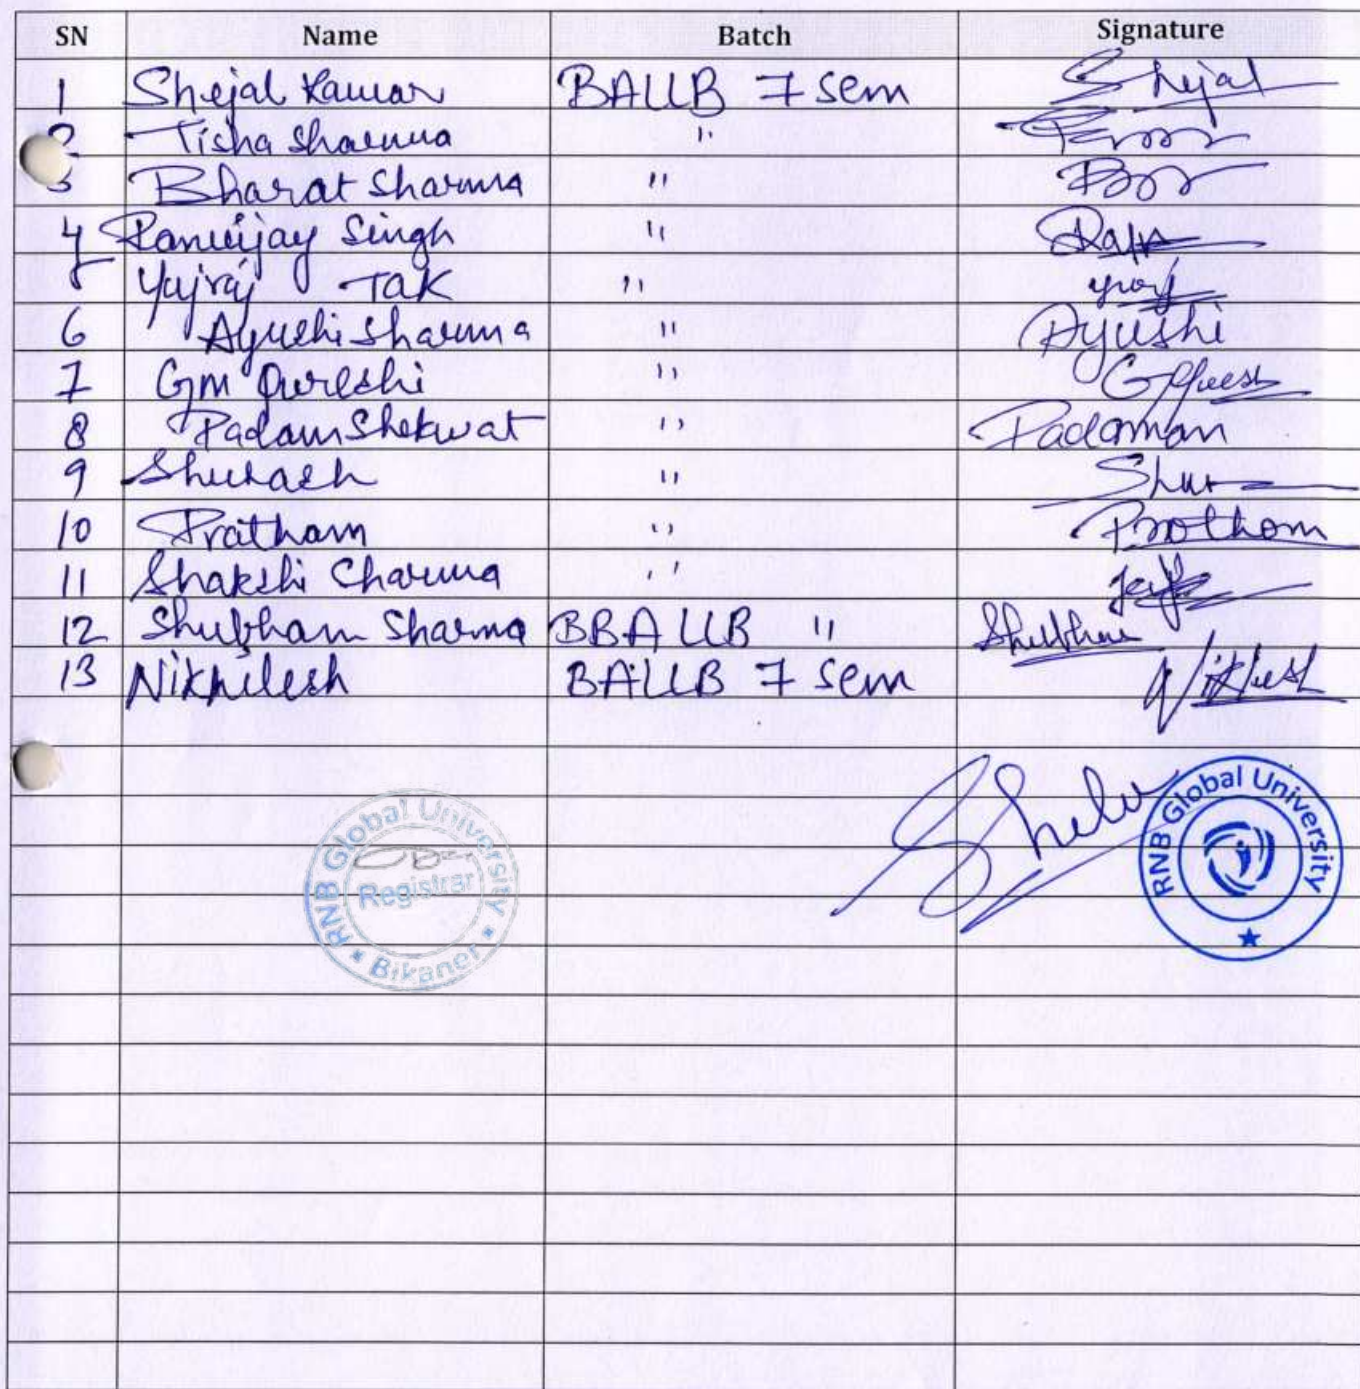 SN Name Batch Signature
1 Shejal Kanwar BALLB 7 Sem Shejal
2 Tisha Sharma "
3 Bharat Sharma "
4 Ranvijay Singh "
5 Yujraj Tak "
6 Ayushi Sharma " Ayushi
7 Gm Qureshi "
8 Padam Shekwat " Padaman
9 "
10 Pratham " Pratham
11 Shakshi "
12 Shubham Sharma BBA LLB "
13 Nikhilesh BALLB 7 Sem
RNB Global University
Registrar
Bikaner
RNB Global University